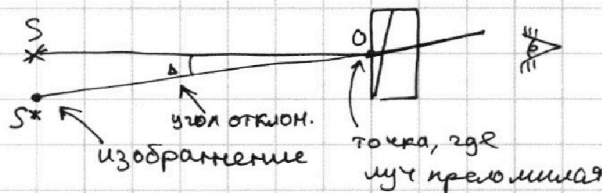 S
O
Δ
S*
угол отклон.
изображение
точка, где
луч преломился